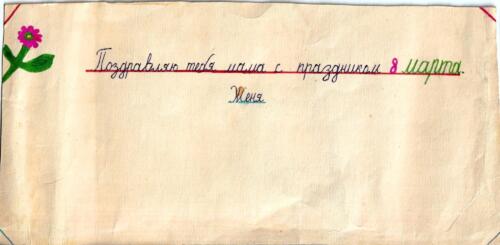 Поздравляю тебя мама с праздником 8 марта.
Женя